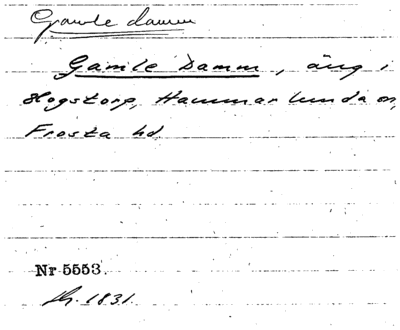 Gamle damm
Gamle Damm, äng i
Hogstorp, Hammarlunda sn,
Frosta hd
Nr 5553.
1831.